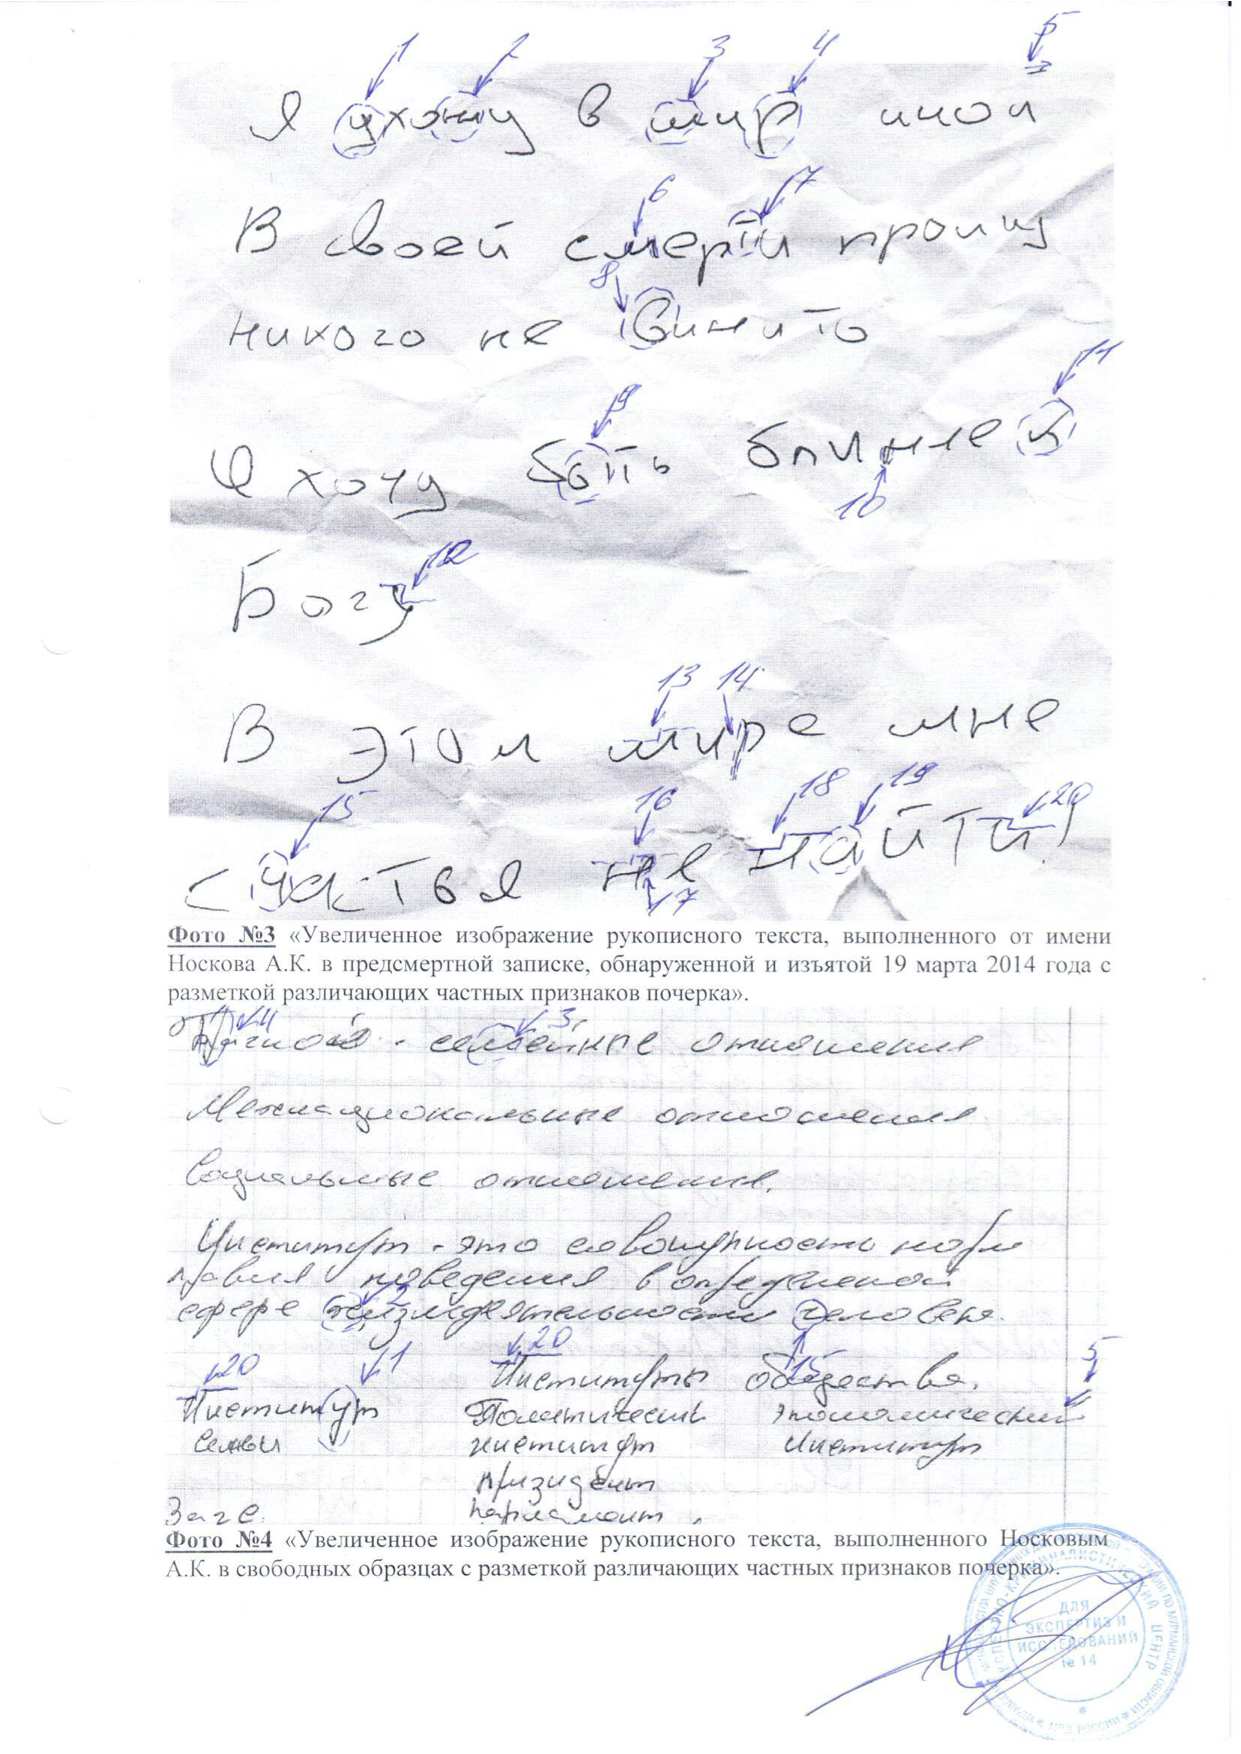 1 2 3 4 5
Я ухожу в мир иной
6 7
В своей смерти прошу
8
никого не винить
9 11
Я хочу быть ближе к
10
12
Богу
13 14
В этом мире мне
15 16 18 19 20
счастья не найти!
17
Фото №3 «Увеличенное изображение рукописного текста, выполненного от имени
Носкова А.К. в предсмертной записке, обнаруженной и изъятой 19 марта 2014 года с
разметкой различающих частных признаков почерка».
4 3
- семейные отношения
Межнациональные отношения
Социальные отношения.
Институт - это совокупность норм
правил поведения в определеной
2
сфере жизнидеятельности человека.
20 1 20 15 5
Институты общества.
Институт Политический Экономический
семьи институт Институт
призидент
парламент
Фото №4 «Увеличенное изображение рукописного текста, выполненного Носковым
А.К. в свободных образцах с разметкой различающих частных признаков почерка».
ДЛЯ
ЭКСПЕРТИЗ И
ИССЛЕДОВАНИЙ
№ 14